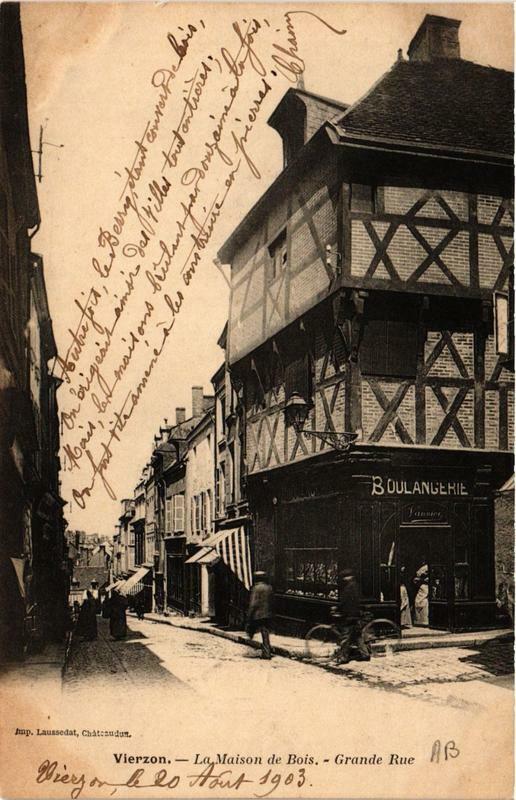 Autrefois, le Berry étant couvert de bois,
On érigeait ainsi des Villes tout entières;
Mais, les maisons brûlant par douzaine à la fois,
On fut vite amené à les construire en pierres.
BOULANGERIE
Imp. Laussedat, Châteaudun.
Vierzon. — La Maison de Bois. - Grande Rue
AB
Vierzon, le 20 Août 1903.